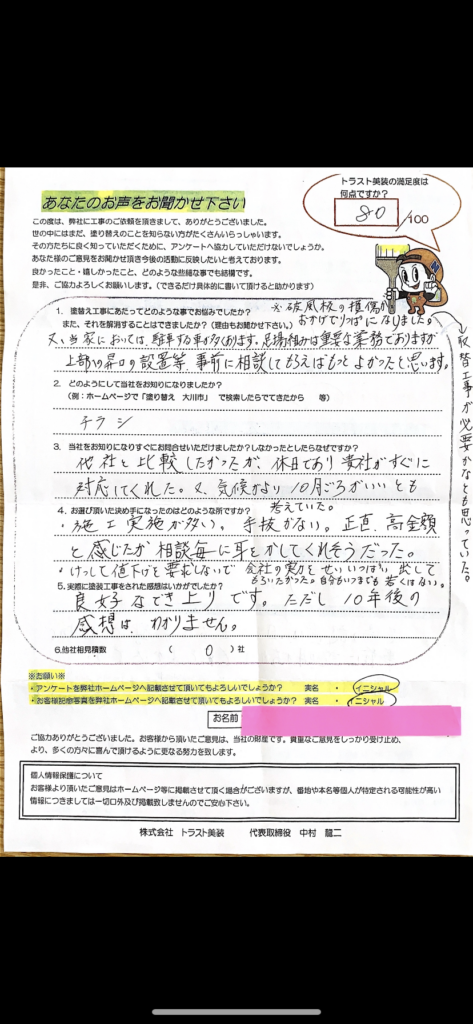 あなたのお声をお聞かせ下さい
トラスト美装の満足度は
何点ですか?
80 /100
この度は、弊社に工事のご依頼を頂きまして、ありがとうございました。
世の中にはまだ、塗り替えのことを知らない方がたくさんいらっしゃいます。
その方たちに良く知っていただくために、アンケートへ協力していただけないでしょうか。
あなた様のご意見をお聞かせ頂き今後の活動に反映したいと考えております。
良かったこと・嬉しかったこと、どのような些細な事でも結構です。
是非、ご協力よろしくお願いします。(できるだけ具体的に書いて頂けると助かります)
1. 塗替え工事にあたってどのような事でお悩みでしたか?
また、それを解消することはできましたか?(理由もお聞かせ下さい。)
※破風板の損傷が
おかげでりっぱになりました。
→取替工事が必要かなとも思っていた。
又、当家においては、駐車する車が多くあります。足場組みは重要な業務でありますが
上部の昇口の設置等、事前に相談してもらえばもっとよかったと思います。
2. どのようにして当社をお知りになりましたか?
(例:ホームページで「塗り替え 大川市」で検索したらでてきたから 等)
チラシ
3. 当社をお知りになりすぐにお問合せいただけましたか?しなかったとしたらなぜですか?
他社と比較したかったが、休日であり貴社がすぐに
対応してくれた。又、気候がより10月ごろがいいとも
考えていた。
4. お選び頂いた決め手になったのはどのような所ですか?
・施工実施が多い。手抜がない。正直、高金額
と感じたが相談毎に耳をかしてくれそうだった。
・けっして値下げを要求しないで会社の実力をせいいっぱい出して
もらいたかった。自分もいつまでも若くはない。
5. 実際に塗装工事をされた感想はいかがでしたか?
良好なでき上りです。ただし10年後の
感想は、わかりません。
6.他社相見積数 ( 0 )社
※お願い※
・アンケートを弊社ホームページへ記載させて頂いてもよろしいでしょうか? 実名 ・ イニシャル
・お客様記念写真を弊社ホームページへ記載させて頂いてもよろしいでしょうか? 実名 ・ イニシャル
お名前
ご協力ありがとうございました。お客様から頂いたご意見は、当社の財産です。貴重なご意見をしっかり受け止め、
より、多くの方々に喜んで頂けるように更なる努力を致します。
個人情報保護について
お客様より頂いたご意見はホームページ等に掲載させて頂く場合がございますが、番地や本名等個人が特定される可能性が高い
情報につきましては一切口外及び掲載致しませんのでご安心下さい。
株式会社 トラスト美装 代表取締役 中村 龍二